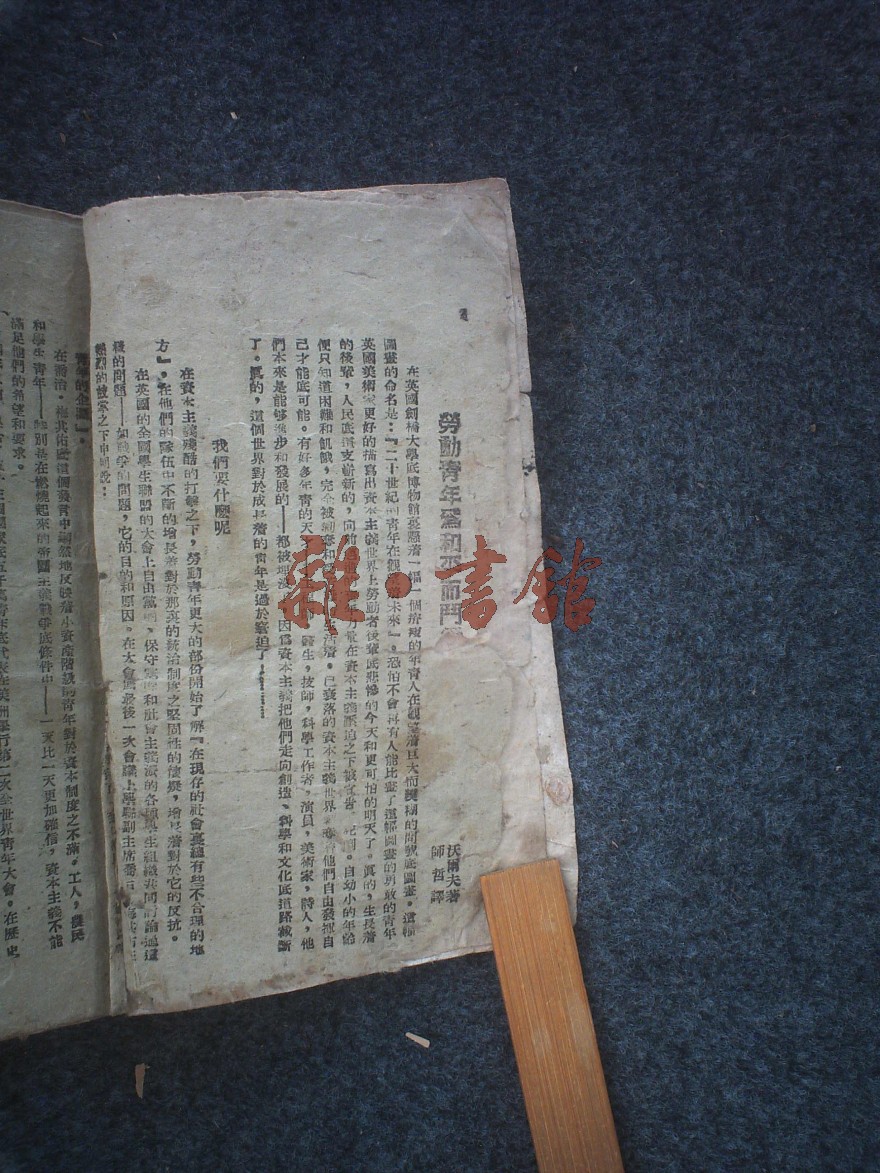 勞動青年爲和平而鬥
沃爾夫著
師哲譯
在英國劍橋大學底博物館裏懸着一幅一個
的年青人在觀望着巨大而模糊的問號底圖畫。這幅
圖畫的命名是：『二十世紀的青年在觀
未來』。恐怕不會再有人能比畫了這幅圖畫的勇敢的青年
英國美術家更好的描寫出資本主義世界上勞動者後輩底悲慘的今天和更可怕的明天了。眞的，生長着
的後輩，人民底這支嶄新的，向前
量在資本主義壓迫之下被
自幼小的年齡
便只知道困難和飢餓，完全被剝奪和
生活着。已衰落的資本主義世界
他們自由發揮自
己才能底可能。有好多年青的天
醫生，技師，科學工作者，演員，美術家，詩人，他
們本來是能够進步和發展的——都被埋沒
因爲資本主義把他們走向創造、科學和文化底道路截斷
了。眞的，這個世界對於成長着的青年是過於窄迫了……
我們要什麼呢
在資本主義殘酷的打擊之下，勞動青年更大的部份開始了解『在現存的社會裏總有些不合理的地
方』，在他們的隊伍中不斷的增長着對於那裏的統治制度之堅固性的懷疑，增長着對於它的反抗。
在英國的全國學生聯盟的大會上自由黨的、保守黨的和社會主義派的各種學生組織共同討論過這
樣的問題——如戰爭的問題，它的目的和原因。在大會底最後一次會議上學聯副主席喬治
之下申明說：
在喬治
這個發言中
地反映着小資產階級的青年對於資本制度之不滿。工人，農民
和學生青年——特別是在燃燒起來的帝國主義戰爭底條件中——一天比一天更加確信，資本主義不能
滿足他們的希望和要求。
第二次全世界青年大會。在歷史
雜·書館